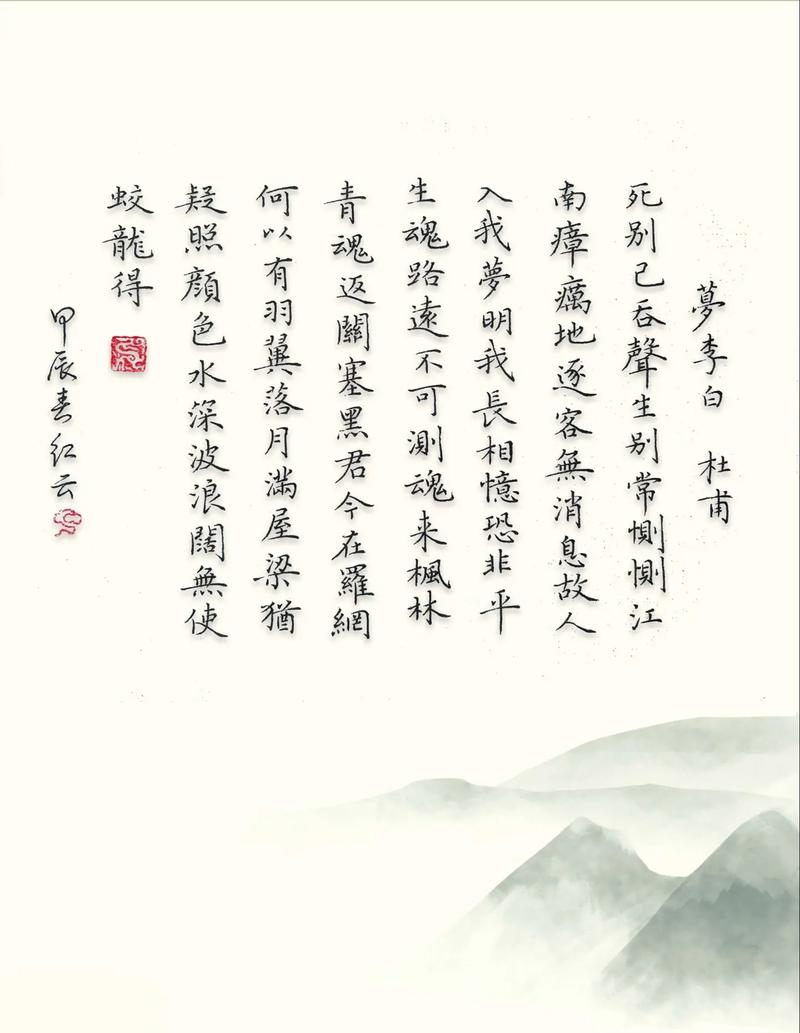 夢李白 杜甫
死别已吞聲生别常惻惻江
南瘴癘地逐客無消息故人
入我夢明我長相憶恐非平
生魂路遠不可測魂来楓林
青魂返關塞黑君今在羅網
何以有羽翼落月滿屋梁猶
疑照顔色水深波浪闊無使
蛟龍得
甲辰春红云